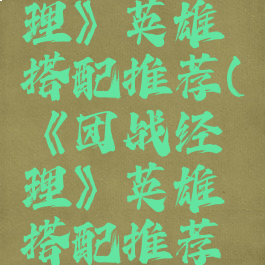 理》英雄
搭配推荐(
《团战经
理》英雄
搭配推荐